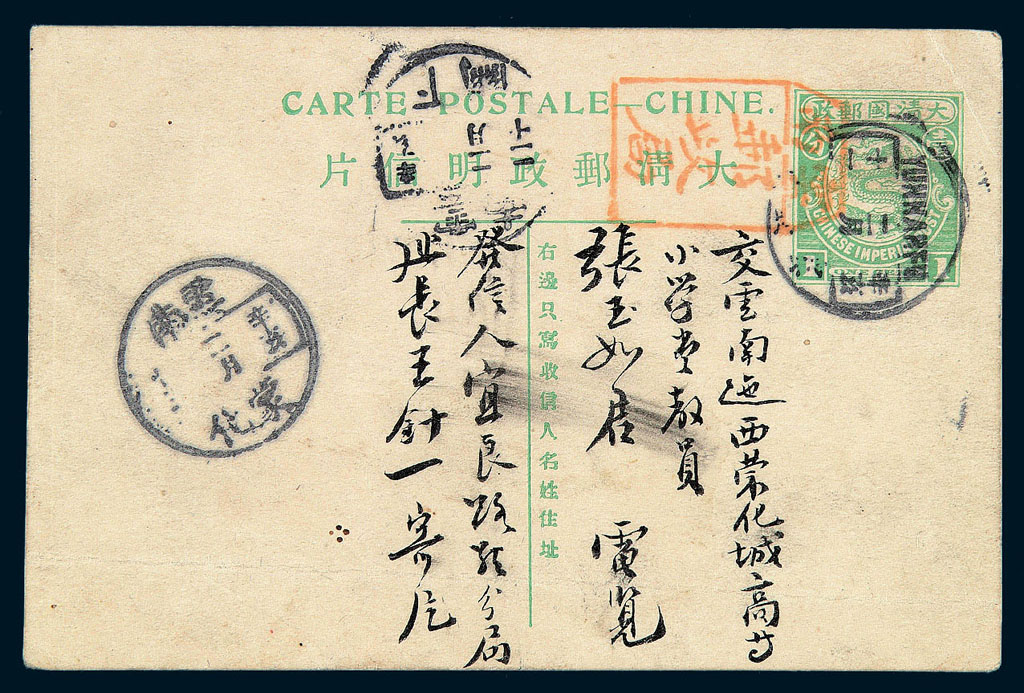 CARTE POSTALE—CHINE.
大清郵政明信片
大清國郵政
CHINESE IMPERIAL POST
YUNNANFU
郵政局
右邊只寫收信人名姓住址
交雲南迤西蒙化城高等
小学堂教員
張玉如居 電覽
發信人宜良路 分局
巡長王針一寄片
雲南
二月
蒙化